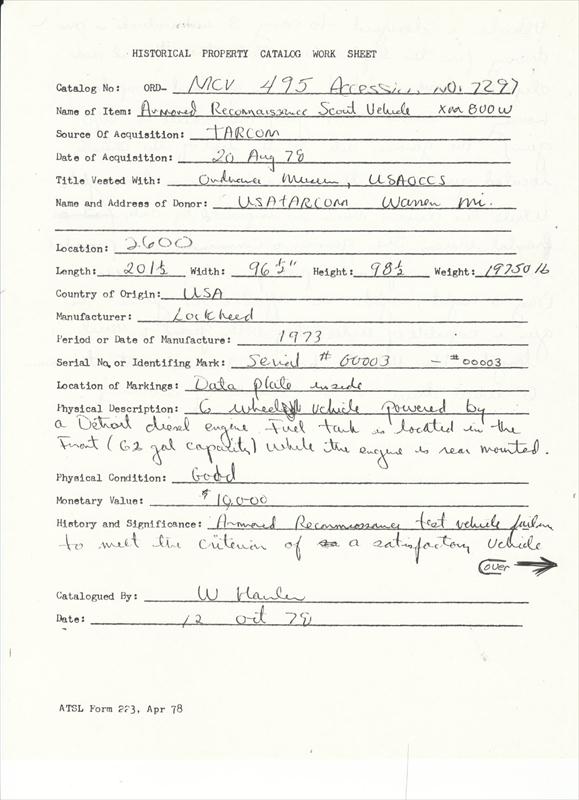 HISTORICAL PROPERTY CATALOG WORK SHEET
Catalog No: ORD- MCV 495 Accession No. 7297
Name of Item: Armored Reconnaissance Scout Vehicle XM 800W
Source Of Acquisition: TARCOM
Date of Acquisition: 20 Aug 78
Title Vested With: Ordnance Museum, USAOCCS
Name and Address of Donor: USATARCOM Warren Mi.
Location: 2600
Length: 201½ Width: 96½" Height: 98½ Weight: 19750 lb
Country of Origin: USA
Manufacturer: Lockheed
Period or Date of Manufacture: 1973
Serial No. or Identifing Mark: Serial # 00003 - #00003
Location of Markings: Data plate inside
Physical Description: 6 wheeled vehicle powered by
a Detroit diesel engine. Fuel tank is located in the
Front (62 gal capacity) while the engine is rear mounted.
Physical Condition: Good
Monetary Value: $
History and Significance: Armored Reconnissance test vehicle
to meet the criterion of a satisfactory vehicle
over
Catalogued By: W
Date: 12 oct 78
ATSL Form 223, Apr 78